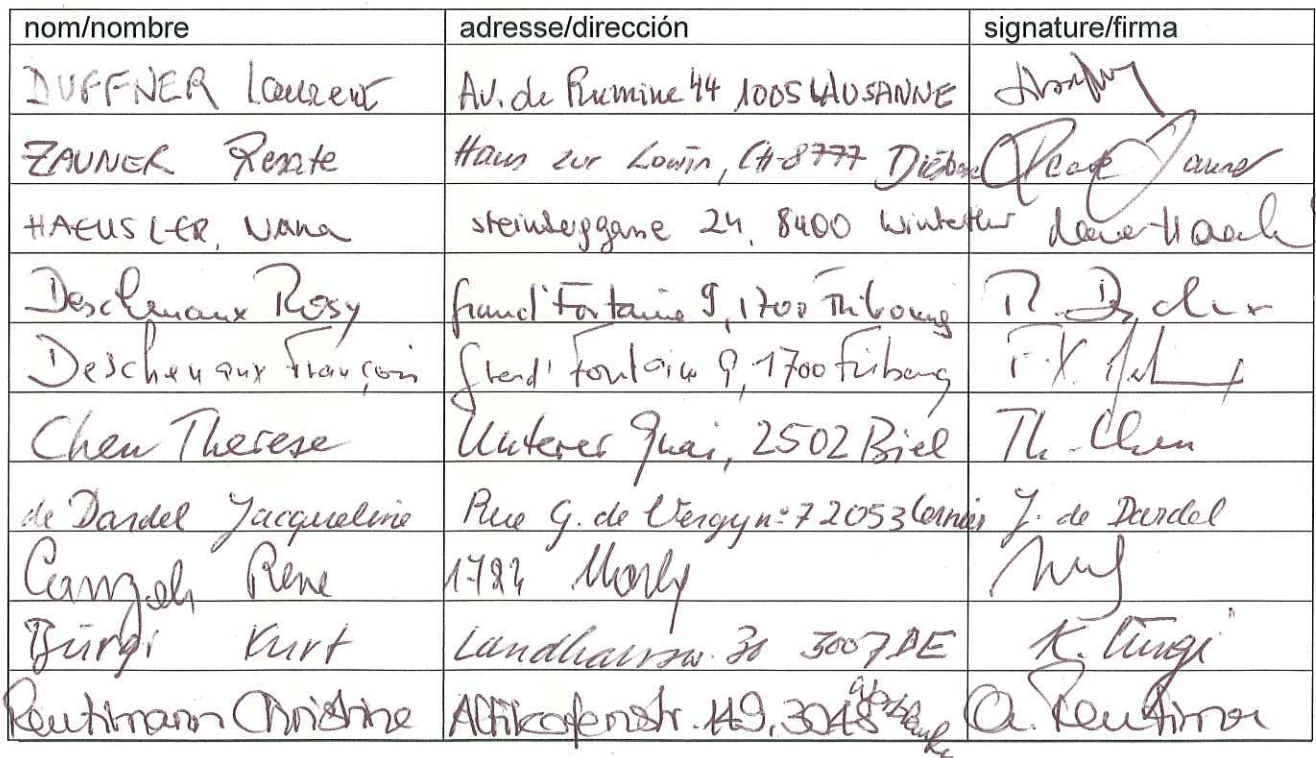 nom/nombre adresse/dirección signature/firma
DUFFNER Laurent Av. de Rumine 44 1005 LAUSANNE
ZAUNER Renate Haus zur Löwin, CH-8777
HAEUSLER, Nana Steinberggasse 24, 8400 Winterthur
Deschenaux Rosy Grand'Fontaine 9, 1700 Fribourg
Deschenaux François Grand'Fontaine 9, 1700 Fribourg
Chen Therese Unterer Quai, 2502 Biel Th. Chen
de Dardel Jacqueline Rue G. de Vergy n° 7 2053 Cernier J. de Dardel
René Marly
Bürgi Kurt 30 3007 BE K. Bürgi
Reutimann Christine Altikofenstr. 149, 3048